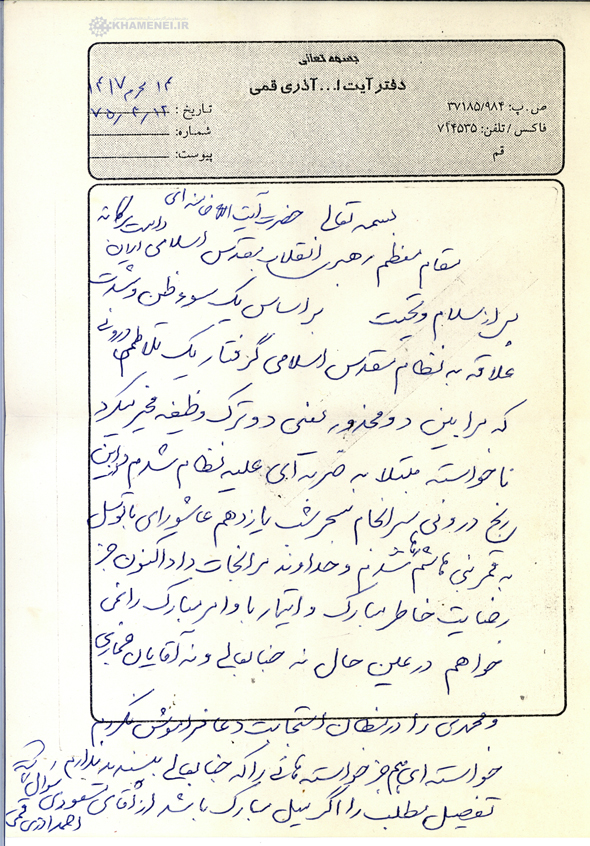 KHAMENEI.IR
بسمه تعالی
دفتر آیت ا... آذری قمی
ص.ب: ۳۷۱۸۵/۹۸۴
فاکس/تلفن: ۷۴۴۵۳۵
قم
۱۴ محرم ۱۴۱۷
تاریخ: ۷۵٫۳٫۱۲
شماره:
پیوست:
بسمه تعالی حضرت آیت الله خامنه‌ای دامت برکاته
مقام معظم رهبری انقلاب مقدس اسلامی ایران
پس از سلام و تحیت بر اساس یک سوءظن و شدت
علاقه به نظام مقدس اسلامی گرفتار یک تلاطم درونی
که مرا بین دو محذور یعنی دو ترک وظیفه مخیر میکرد
ناخواسته مبتلا به ضربه‌ای علیه نظام شدم و این
رنج درونی سرانجام سحر شب یازدهم عاشورای با توسل
به قمر بنی هاشم شدم و خداوند مرا نجات داد اکنون جز
رضایت خاطر مبارک و ایتمار با وامر مبارک را نمی
خواهم در عین حال نه جنابعالی و نه آقایان
و محمدی را در مظان استجابت دعا فراموش نکردم
خواسته‌ای هم جز خواسته هائی را که جنابعالی بپسندید ندارم
تفصیل مطلب را اگر میل مبارک باشد از آقای مسعودی سوال
احمد آذری قمی